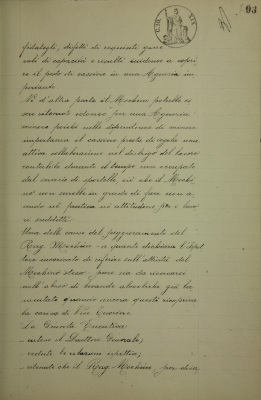 93
fidalogli, difetti di requisiti gene
rali di capacità e risulti evidenza a copri
re il posto di cassiere in una Agenzia in
pendente
Nè d'altra parte il Mecheno potrebbe es
sere ritenuto idoneo per una Agenzia
minore poichè nelle dipendenze di minore
importanza il cassiere presta di regola una
attiva collaborazione nel disbrigo del lavoro
contabile durante il tempo non occupato
dal servizio di sportello, ciò che il Meche
no non sarebbe in grado di fare non a
vendo nè pratica nè attitudine per i lavo
ri suddetti.
Una delle cause del peggioramento del
Rag. Mecheno - a quanto dichiara l'Ispet
tore incaricato di riferire sull'attività del
Mecheno stesso - pare sia da ricercarsi
nell'abuso di bevande alcooliche già la
mentato quando ancora questi ricopriva
la carica di Vice Cassiere.
La Giunta Esecutiva
- inteso il Direttore Generale,
- vedute le relazioni ispettive,
- ritenuto che il Rag. Mecheno, per